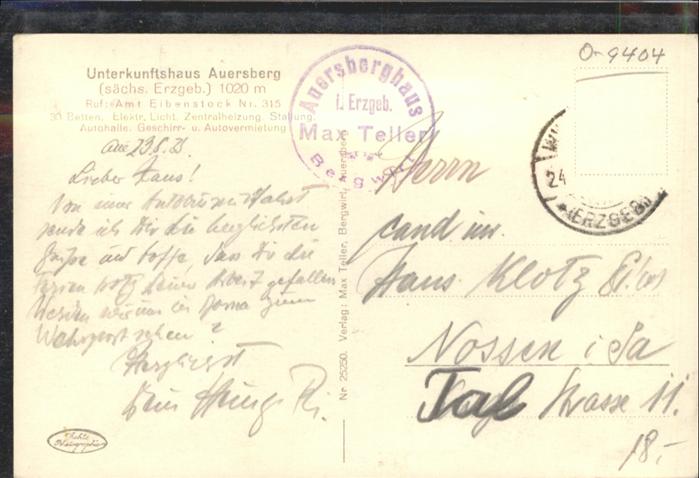 Unterkunftshaus Auersberg
(sächs. Erzgeb.) 1020 m
Ruf: Amt Eibenstock Nr. 315
30 Betten, Elektr. Licht, Zentralheizung, Stallung,
Autohalle. Geschirr- u. Autovermietung
Auersberghaus
i. Erzgeb.
Max Teller
Bergwirt
O-9404
24
ERZGEB
Lieber Hans!
Von einer Autobusfahrt
sende ich Dir die herzlichsten
Grüße und hoffe, dass Dir die
Ferien trotz Deiner Arbeit gefallen.
Werden wir uns in zum
Wehrsport sehen?
Herzlichst
Dein
Nr. 25250. Verlag: Max Teller, Bergwirt, Auersberg
Herrn
cand ing.
Hans Klotz
Nossen i. Sa
Tal Strasse 11.
18.-
Echte
Photographie